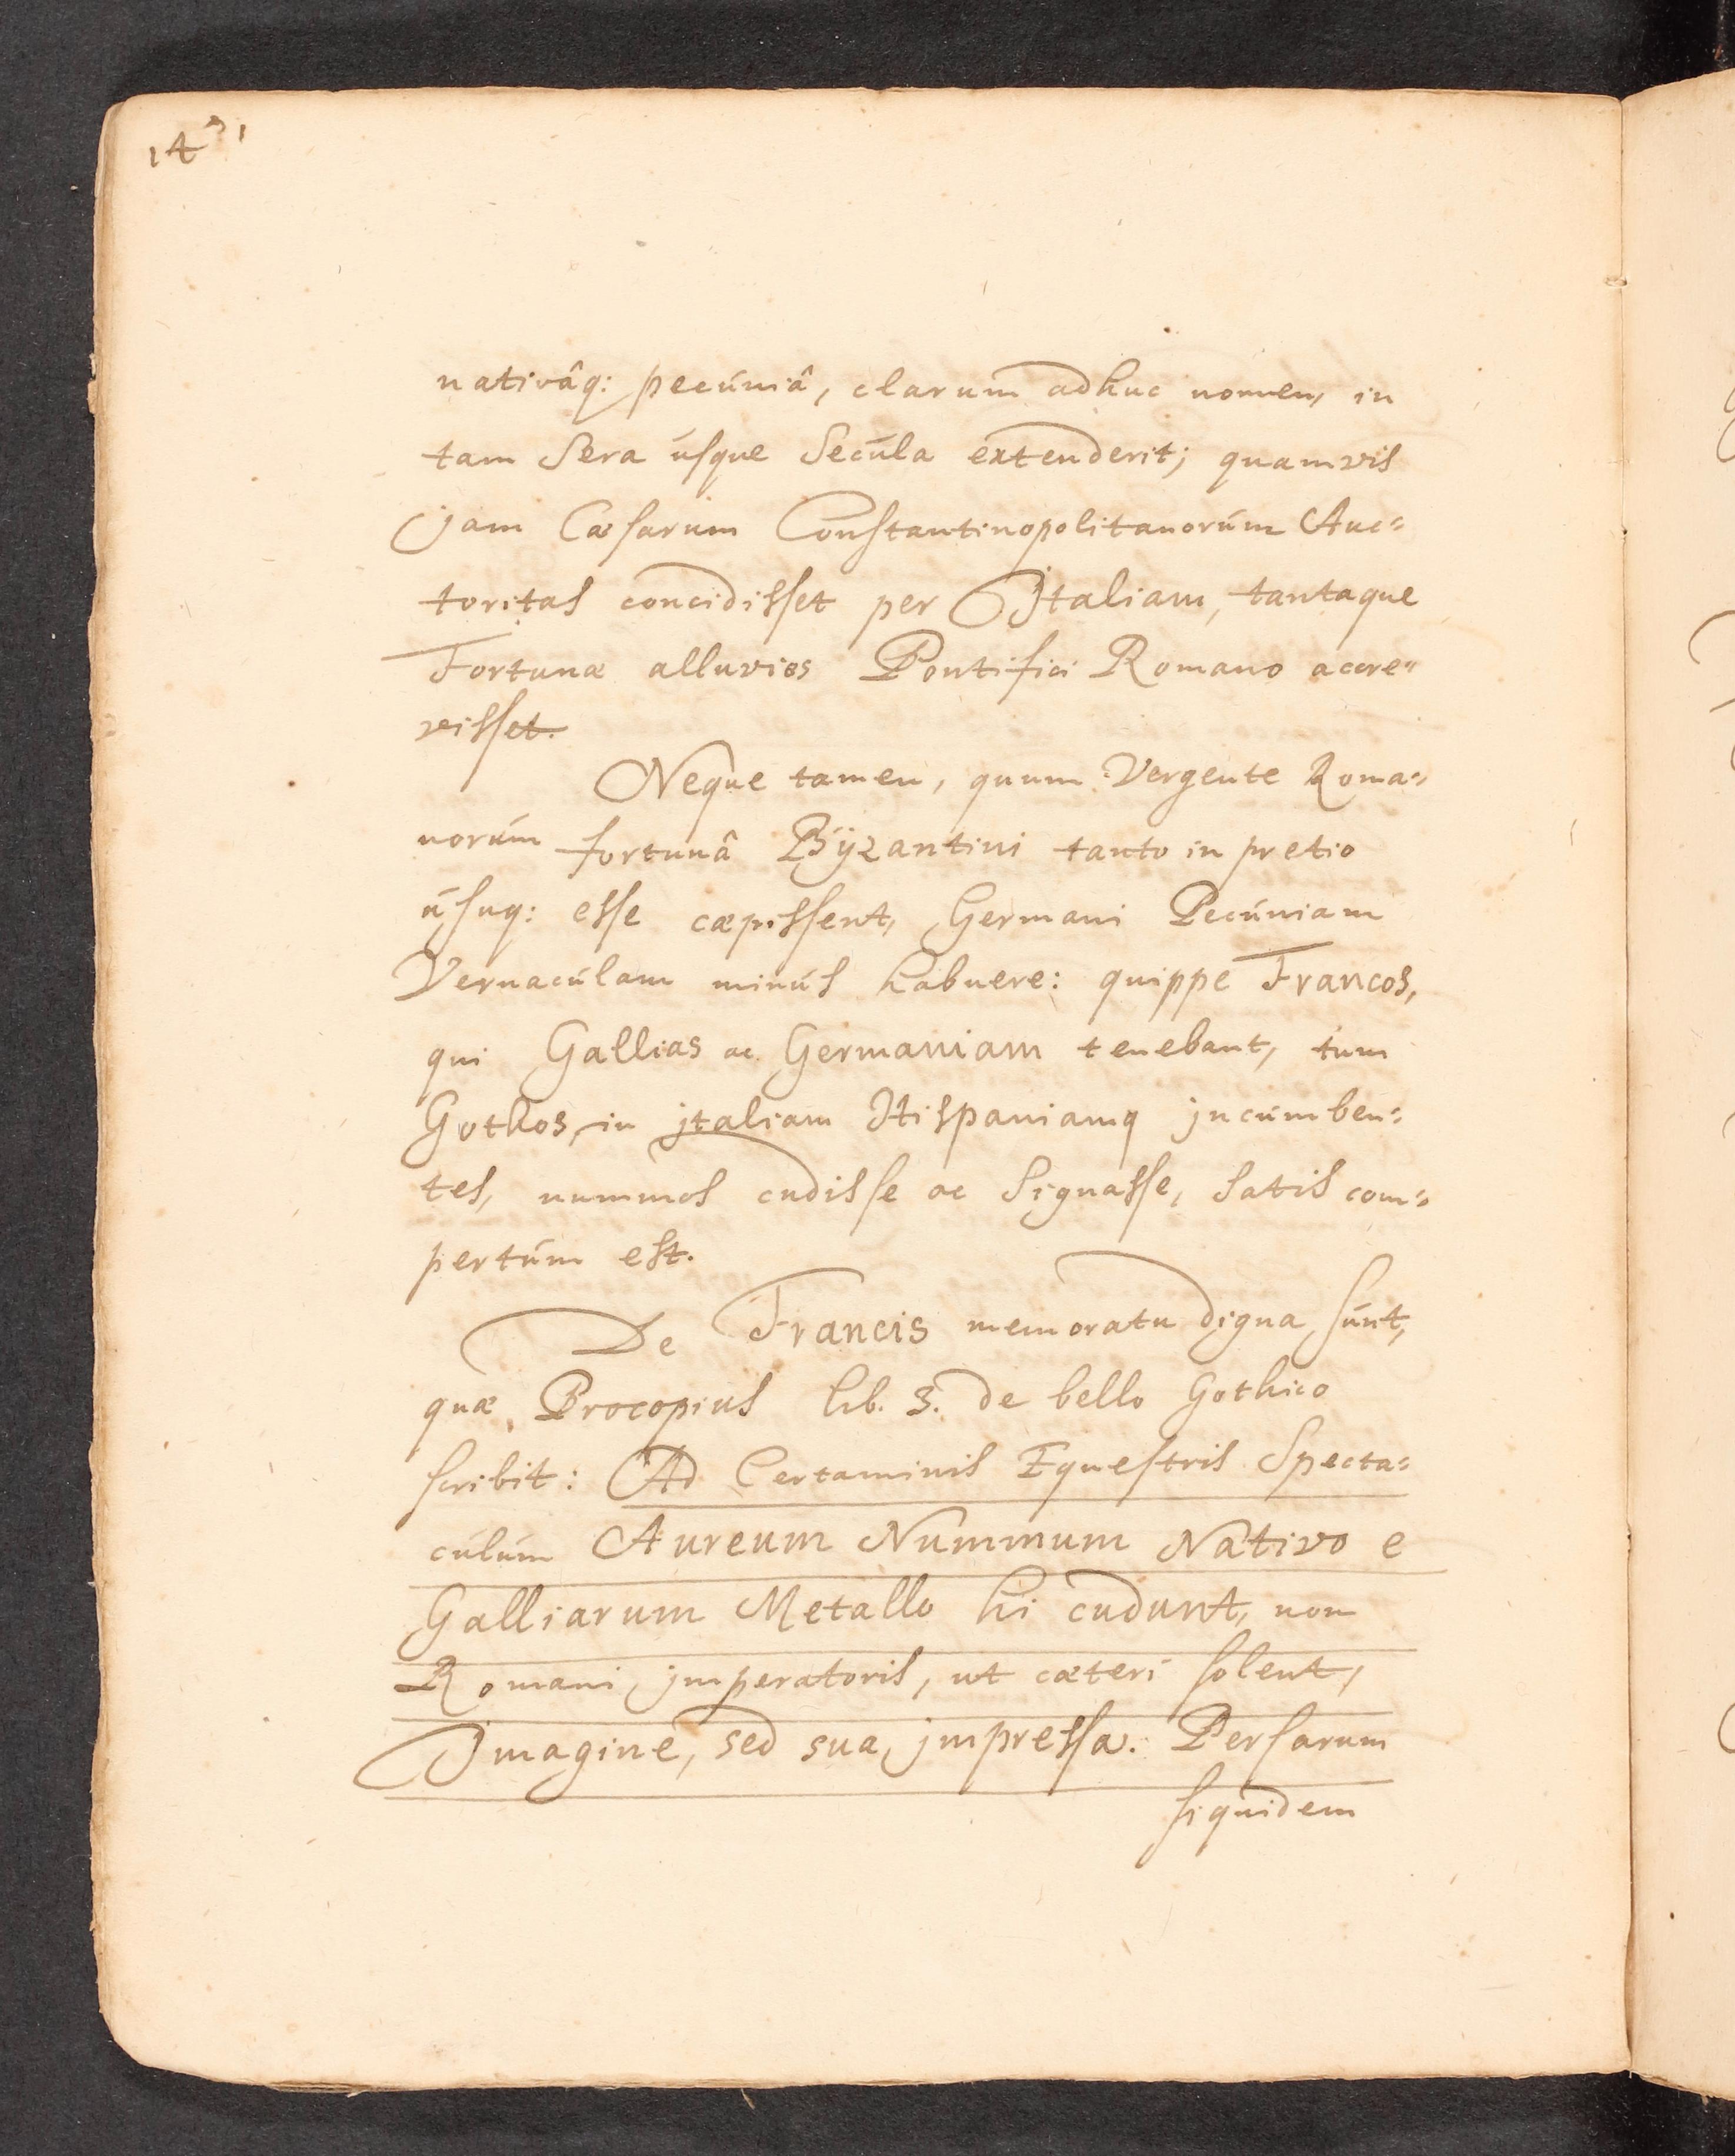 nativâq: pecúniâ, clarum adhuc nomen, in
tam Sera úsque Secúla extenderit; quamvis
jam Cæsarum Constantinopolitanorúm Auc=
toritas concidisset per Italiam, tantaque
Fortunæ alluvies Pontifici Romano accre=
visset.
Neque tamen, quum Vergente Roma=
norúm fortunâ Bÿzantini tanto in pretio
úsuq: esse cæpissent, Germani Pecúniam
Vernacúlam minús habuere: quippe Francos,
qui Gallias ac Germaniam tenebant, túm
Gothos, in jtaliam Hispaniamq jncúmben=
tes, nummos cudisse ac Signasse, Satis com=
pertúm est.
De Francis memoratu digna súnt,
quæ Procopius lib. 3. de bello Gothico
scribit: Ad Certaminis Equestris Specta=
cúlúm Aureum Nummum Nativo e
Galliarum Metallo hi cudunt, non
Romani jmperatoris, ut cæteri solent,
Imagine, sed sua jmpressa. Persarum
siquidem